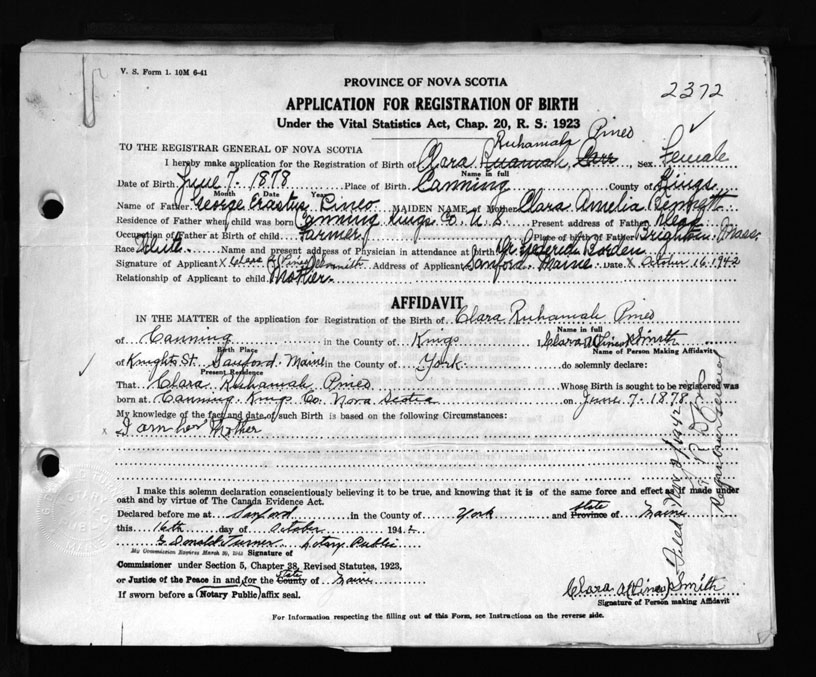 V. S. Form 1. 10M 6-41
2372
PROVINCE OF NOVA SCOTIA
APPLICATION FOR REGISTRATION OF BIRTH
Under the Vital Statistics Act, Chap. 20, R. S. 1923
TO THE REGISTRAR GENERAL OF NOVA SCOTIA
Ruhamah Pineo
I hereby make application for the Registration of Birth of Clara Sex Female
Name in full
Date of Birth June 7. 1878 Place of Birth Canning County of Kings
Month Date Year
Name of Father George Erastus Pineo MAIDEN NAME of Mother Clara Amelia
Residence of Father when child was born Canning Kings Co. N. S. Present address of Father Dead
Occupation of Father at Birth of child Farmer Place of birth of Father Brighton Mass.
Race White Name and present address of Physician in attendance at Birth Borden
Signature of Applicant x Clara A (Pineo) Smith Address of Applicant Sanford Maine Date x October 16 1942
Relationship of Applicant to child Mother.
AFFIDAVIT
IN THE MATTER of the application for Registration of the Birth of Clara Ruhamah Pineo
Name in full
of Canning in the County of Kings I, Clara A (Pineo) Smith
Birth Place Name of Person Making Affidavit
of Knights St. Sanford. Maine in the County of York do solemnly declare:
Present Residence
That Clara Ruhamah Pineo Whose Birth is sought to be registered was
born at Canning Kings Co. Nova Scotia on June 7. 1878
My knowledge of the fact and date of such Birth is based on the following Circumstances:
x I am her Mother
I make this solemn declaration conscientiously believing it to be true, and knowing that it is of the same force and effect as if made under
oath and by virtue of The Canada Evidence Act.
Declared before me at Sanford in the County of York and State Province of Maine
this 16th day of October 1942
G Donald Turner Notary Public
My Commission Expires March Signature of
Commissioner under Section 5, Chapter 38, Revised Statutes, 1923,
or Justice of the Peace in and for the State County of Maine
If sworn before a (Notary Public) affix seal.
Clara A (Pineo) Smith
Signature of Person making Affidavit
For Information respecting the filling out of this Form, see Instructions on the reverse side.
Filed Nov 1942
Registrar General